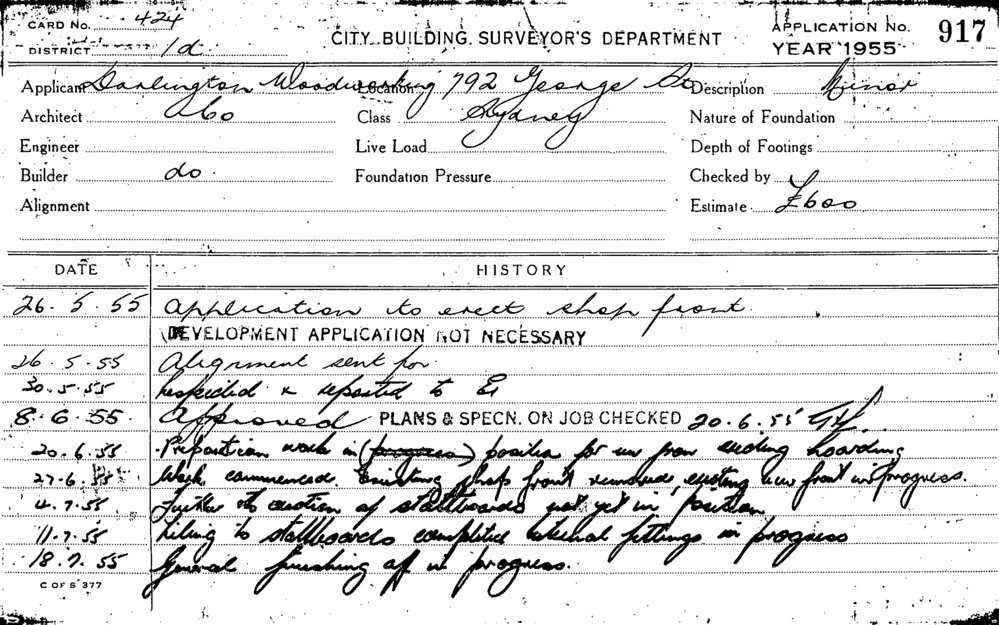 CARD No. 424
DISTRICT 1d
CITY BUILDING SURVEYOR'S DEPARTMENT
APPLICATION No. 917
YEAR 1955
Applicant Darlington Woodworking Location 792 George St Description Minor
Architect Class Sydney Nature of Foundation
Engineer Live Load Depth of Footings
Builder do. Foundation Pressure Checked by
Alignment Estimate £600
DATE HISTORY
26.5.55 Application to erect shop front.
DEVELOPMENT APPLICATION NOT NECESSARY
26.5.55 Alignment sent for
30.5.55 Inspected & reported to
8.6.55 Approved PLANS & SPECN. ON JOB CHECKED 20.6.55
20.6.55 work in (progress) position for new front hoarding
27.6.55 Work commenced. Existing shop front removed, new front in progress.
4.7.55 of stallboards not yet in position
11.7.55 Tiling to stallboards completed internal fittings in progress
18.7.55 General finishing off in progress.
C OF S 377